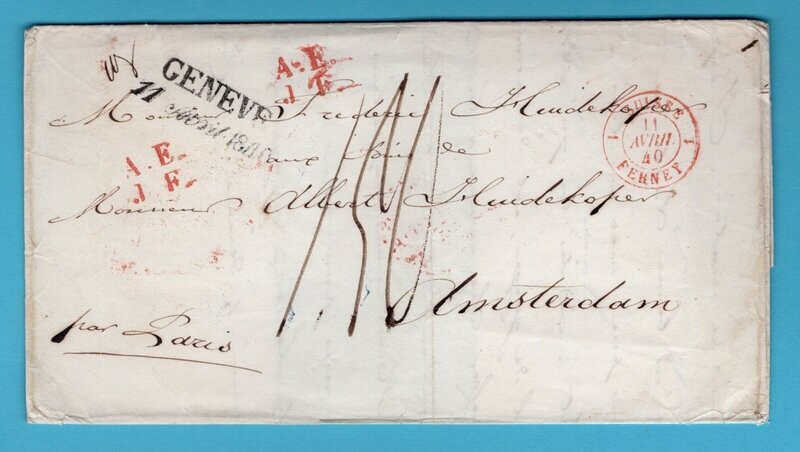 GENEVE
11 Avril 1840
A.E.
J F.
A.E.
J F.
SUISSE
1 11 1
AVRIL
40
FERNEY
Monsieur Frederic Huidekoper
aux soins de
Monsieur Albert Huidekoper
Amsterdam
par Paris
1